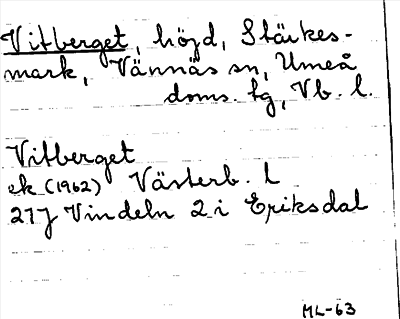 Vitberget, höjd, Stärkes-
mark, Vännäs sn, Umeå
doms. tg, Vb. l.
Vitberget
ek (1962) Västerb. l
21J Vindeln 2 i Eriksdal
ML-63